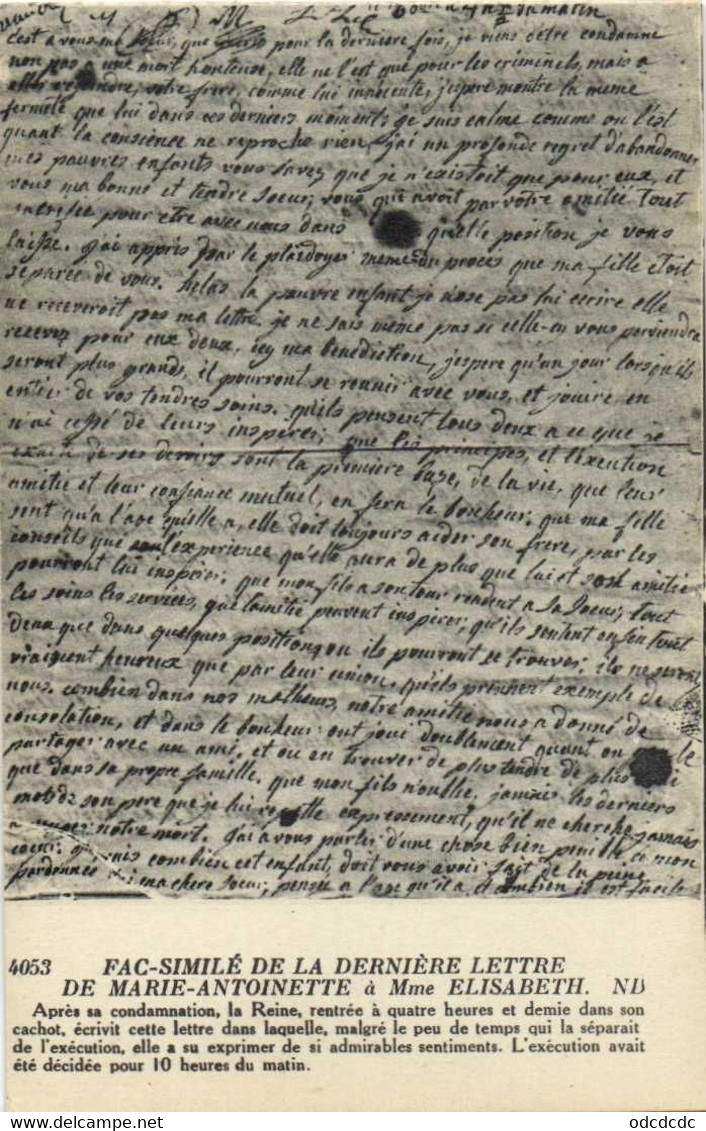 4 h ½ du matin
c'est a vous ma Soeur, que j'ecris pour la derniere fois, je viens d'etre condamné
non pas a une mort honteuse, elle ne l'est que pour les criminels, mais a
aller rejoindre votre frere, comme lui innocente, j'espere montre la meme
fermeté que lui dans ces derniers moments. je suis calme comme on l'est
quant la conscience ne reproche rien, j'ai un profonde regret d'abandonner
mes pauvres enfants vous savez que je n'existoit que pour eux, et
vous ma bonne et tendre soeur, vous qui avoit par votre amitié tout
sacrifié pour etre avec nous dans quelle position je vous
laisse. j'ai appris par le plaidoyer meme du proces que ma fille etoit
separée de vous. helas la pauvre enfant je n'ose pas lui ecrire elle
ne receveroit pas ma lettre. je ne sais meme pas si celle-ci vous parviendra
recevez pour eux deux, icy ma benediction, j'espere qu'un jour lorsqu'ils
seront plus grands, il pourront se reunir avec vous, et jouire en
entier de vos tendres soins. qu'ils pensent tous deux a ce que je
n'ai cessé de leurs inspirer; que les principes, et l'execution
exacte de ses devoirs sont la premiere base, de la vie, que leur
amitié et leur confiance mutuel, en fera le bonheur; que ma fille
sent qu'a l'age qu'elle a, elle doit toujours aider son frere, par les
conseils que l'experience qu'elle aura de plus que lui et son amitié
pourront lui inspirer; que mon fils a son tour rendent a sa Soeur, tout
les soins les services, que l'amitié peuvent inspirer; qu'ils sentent enfin tout
deux que dans quelques positions ou ils pourront se trouver; ils ne seront
vraiment heureux que par leur union, qu'ils prennent exemple de
nous. combien dans nos malheurs, notre amitié nous a donné de
consolation, et dans le bonheur ont joui doublement quant on le
partager avec un ami, et ou en trouver de plus tendre de plus
que dans sa propre famille. que mon fils n'oublie, jamais les derniers
mots de son pere que je lui repette expressement, qu'il ne cherche jamais
a notre mort. j'ai a vous parler d'une chose bien penible a mon
coeur; je sais combien cet enfant, doit vous avoir fait de la peine
pardonnez lui ma chere soeur, pensez a l'age qu'il a et combien il est facile
4053 FAC-SIMILÉ DE LA DERNIÈRE LETTRE
DE MARIE-ANTOINETTE à Mme ELISABETH. ND
Après sa condamnation, la Reine, rentrée à quatre heures et demie dans son
cachot, écrivit cette lettre dans laquelle, malgré le peu de temps qui la séparait
de l'exécution, elle a su exprimer de si admirables sentiments. L'exécution avait
été décidée pour 10 heures du matin.
odcdcdc